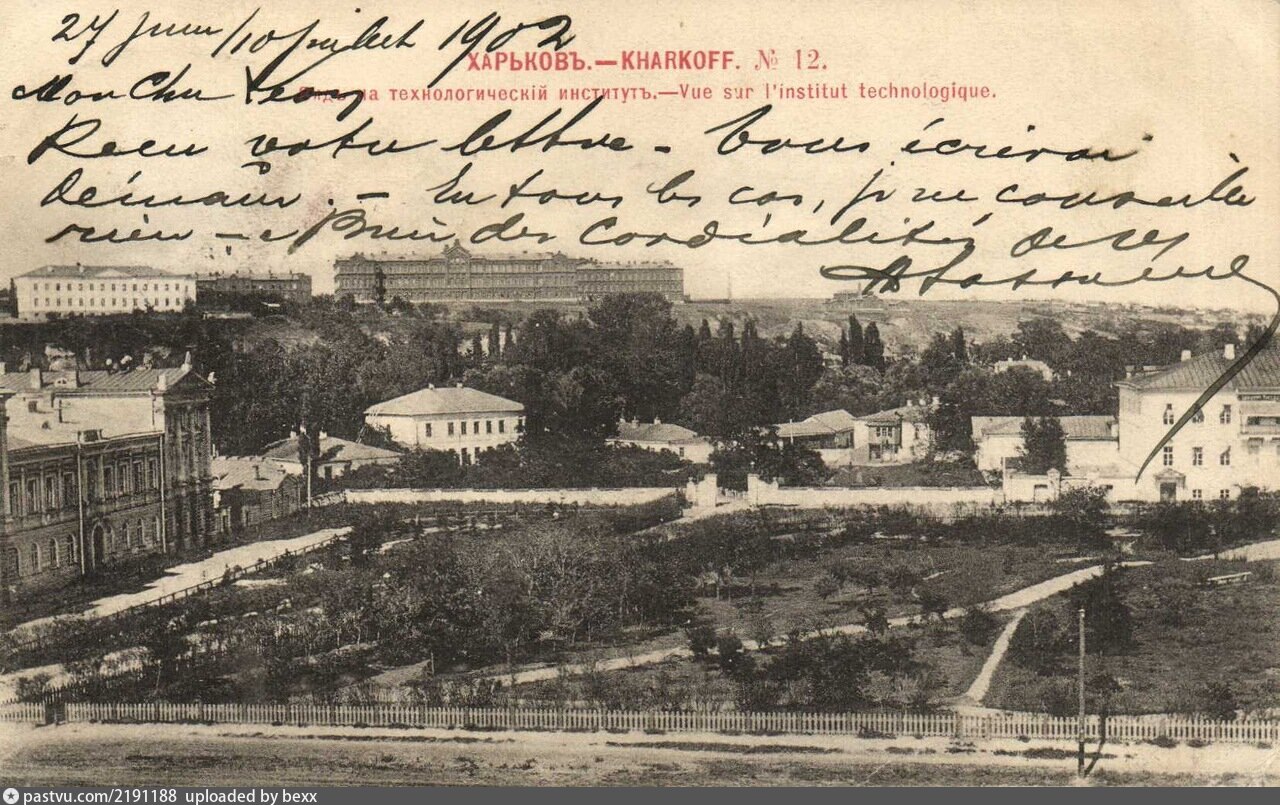 27 Juin/10 Juillet 1902
ХАРЬКОВЪ.—KHARKOFF. № 12.
Mon Cher
Видъ на технологическій институтъ.—Vue sur l'institut technologique.
Recu votre lettre - Vous écrirai
demain. - En tous les cas, je ne conseille
rien - Bien des cordialités de
pastvu.com/2191188 uploaded by bexx